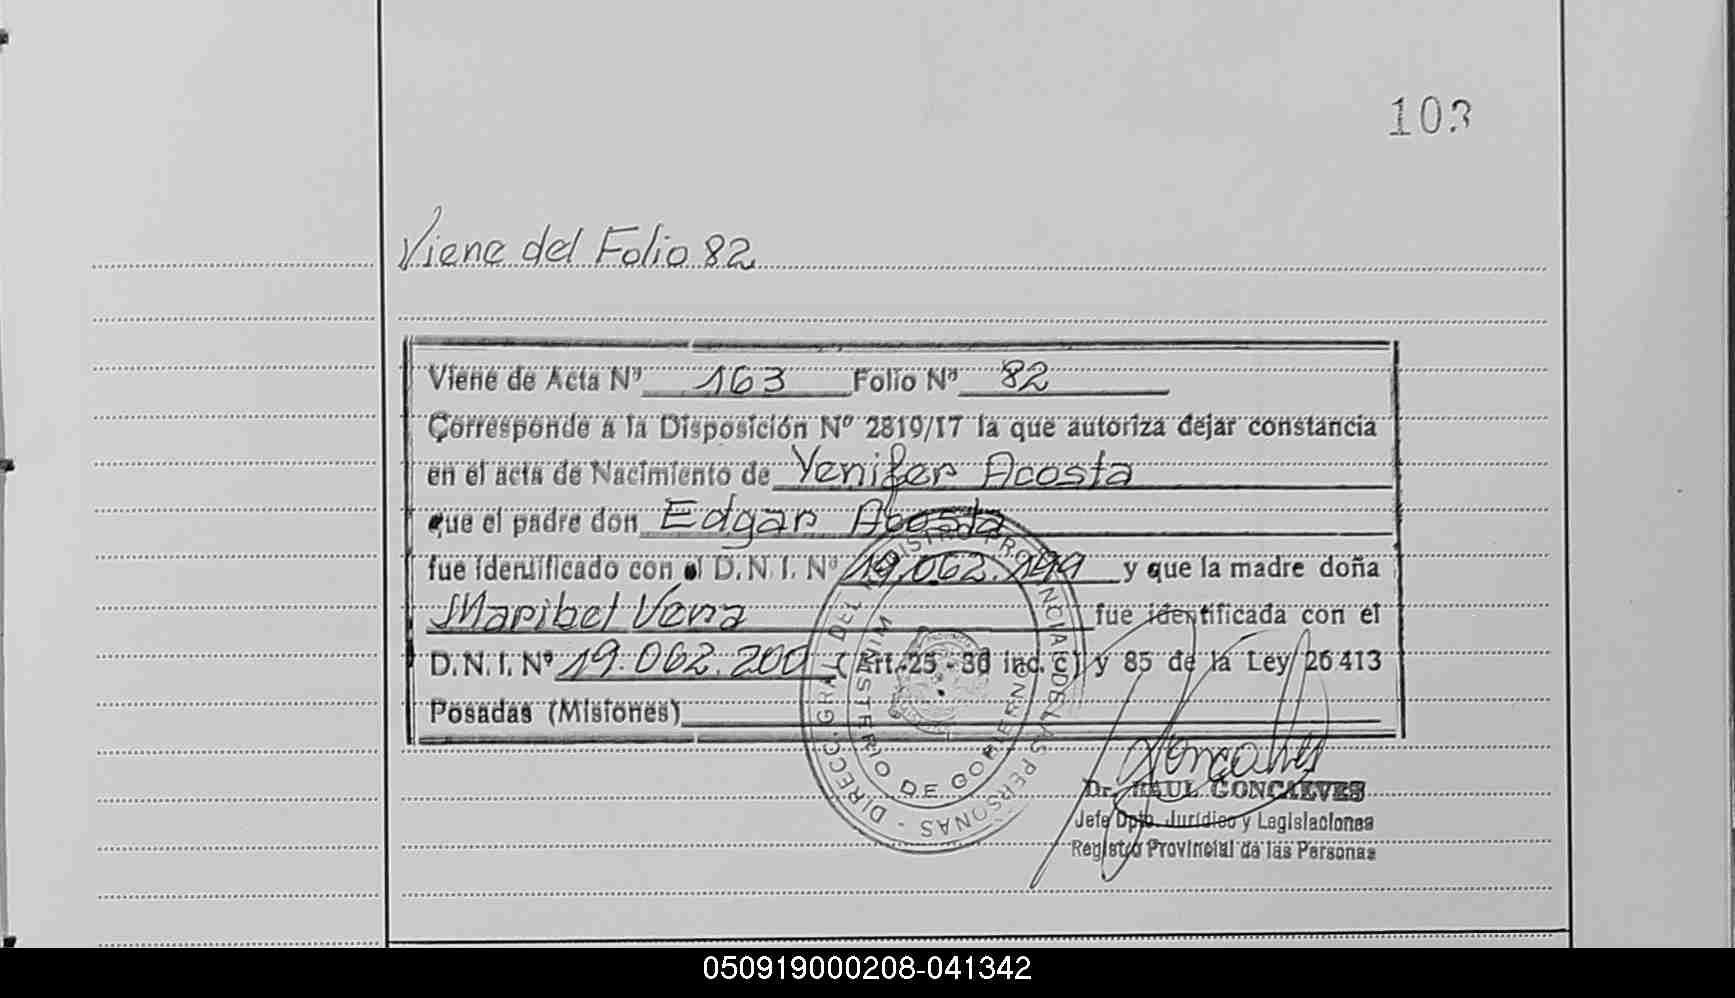 103
Viene del Folio 82
Viene de Acta Nº 163 Folio Nº 82
Corresponde a la Disposición Nº 2819/17 la que autoriza dejar constancia
en el acta de Nacimiento de Yenifer Acosta
que el padre don Edgar Acosta
fue identificado con el D.N.I. Nº 19.062.199 y que la madre doña
Maribel Vera fue identificada con el
D.N.I. Nº 19.062.200 (Art. 25 - 36 inc. c) y 85 de la Ley 26413
Posadas (Misiones)
DIRECC. GRAL. DEL REGISTRO PROVINCIAL DE LAS PERSONAS -
MINISTERIO DE GOBIERNO
Goncalves
Dr. RAUL GONCALVES
Jefe Dpto. Jurídico y Legislaciones
Registro Provincial de las Personas
050919000208-041342